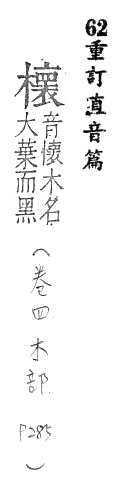 62重訂直音篇
櫰音懷木名
大葉而黑
(卷四木部 P285)